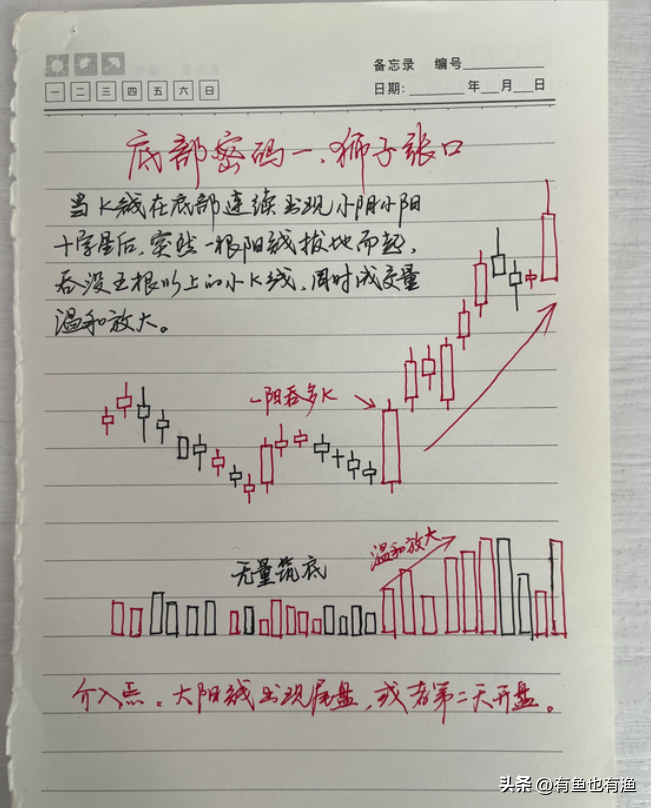 备忘录 编号
一 二 三 四 五 六 日
日期: 年 月 日
底部密码一、狮子张口
当K线在底部连续出现小阴小阳
十字星后,突然一根阳线拔地而起,
吞没五根以上的小K线,同时成交量
温和放大。
一阳吞多K
温和放大
无量筑底
介入点:大阳线出现尾盘,或者第二天开盘。
头条 @有鱼也有渔